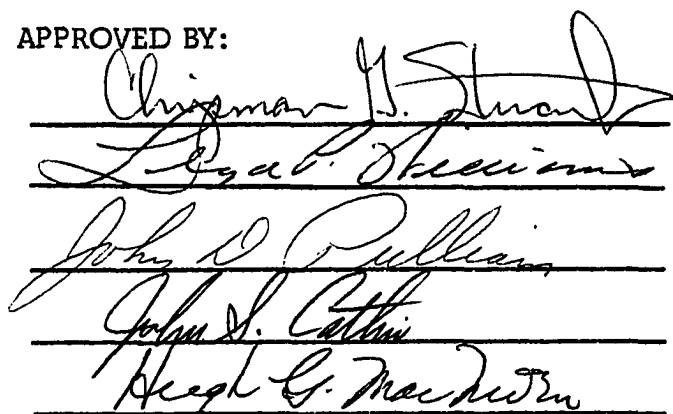 APPROVED BY:
Chipman G. Stuart
Lloyd P. Williams
John D. Pulliam
John S. Catlin
Hugh G.